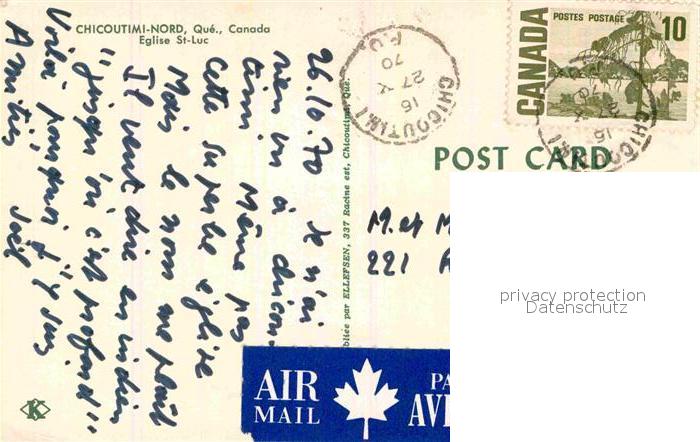 CHICOUTIMI-NORD, Qué., Canada
Eglise St-Luc
26.10.70 Je n'ai
rien vu à chicou-
timi Même pas
cette superbe église
Mais le nom me plait
Il veut dire en indien
"jusqu'ici c'est profond"
Voilà pourquoi j'y suis
Amitiés
Joël
Publiée par ELLEFSEN, 337 Racine est, Chicoutimi, Qué.
CHICOUTIMI
P.Q.
16
27 X
70
POSTES POSTAGE
10
CANADA
POST CARD
M. et M
221
AIR
MAIL
PA
AVI
privacy protection
Datenschutz
K